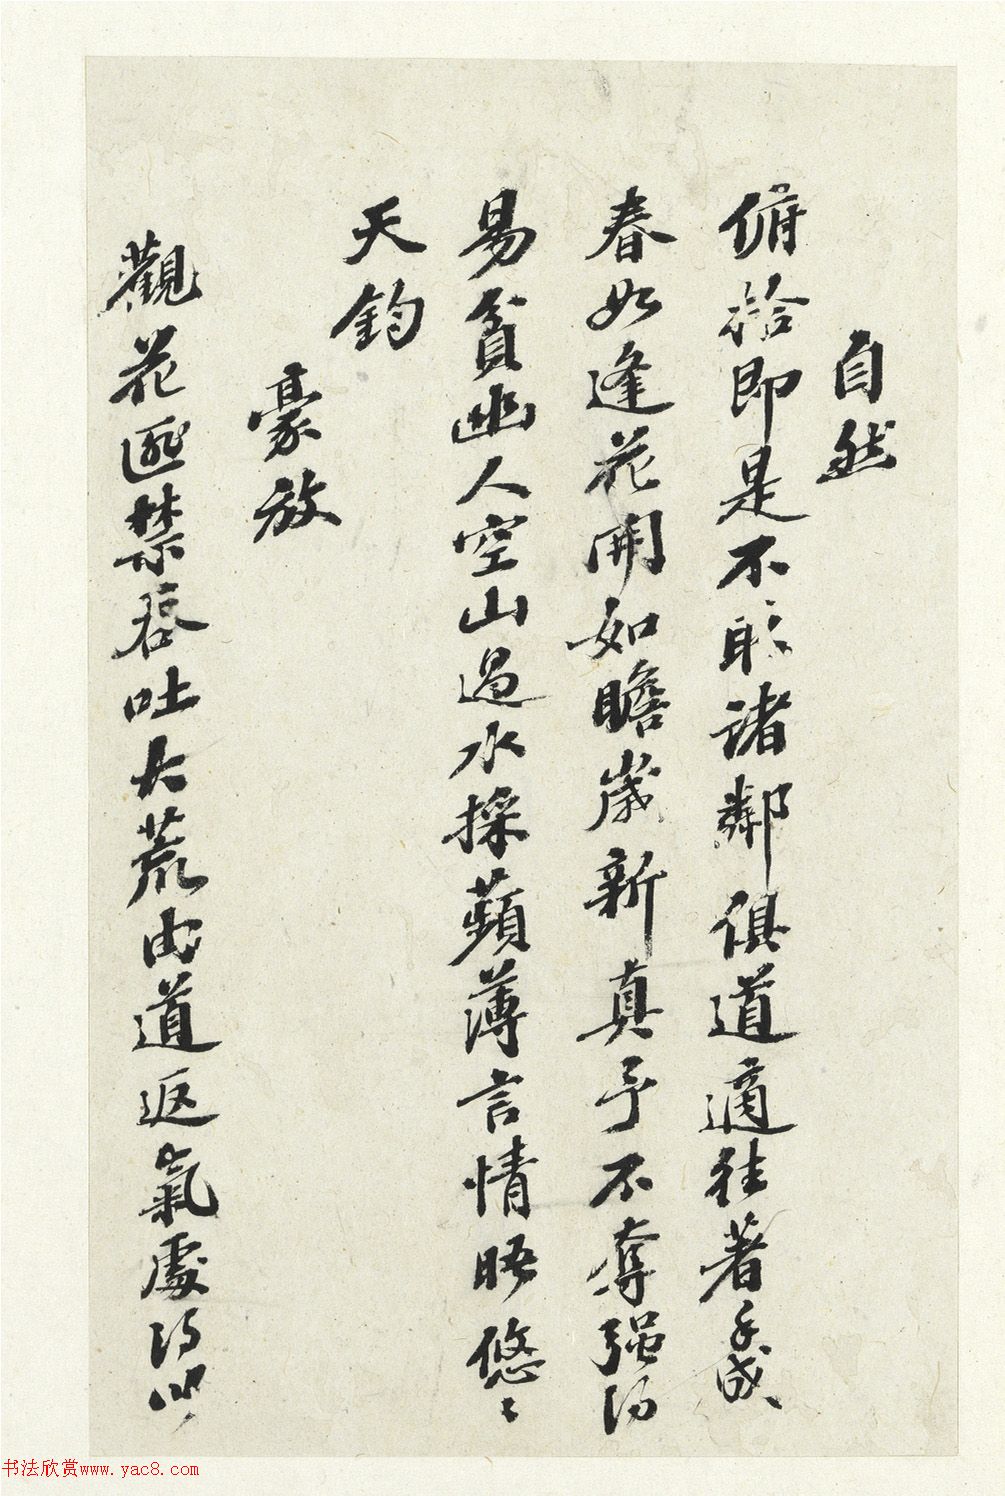 自然
俯拾即是不取諸鄰俱道適往著手成
春如逢花開如瞻歲新真予不奪强得
易貧幽人空山過水採蘋薄言情晤悠〻
天鈞
豪放
觀花匪禁吞吐大荒由道返氣處得以
书法欣赏www.yac8.com